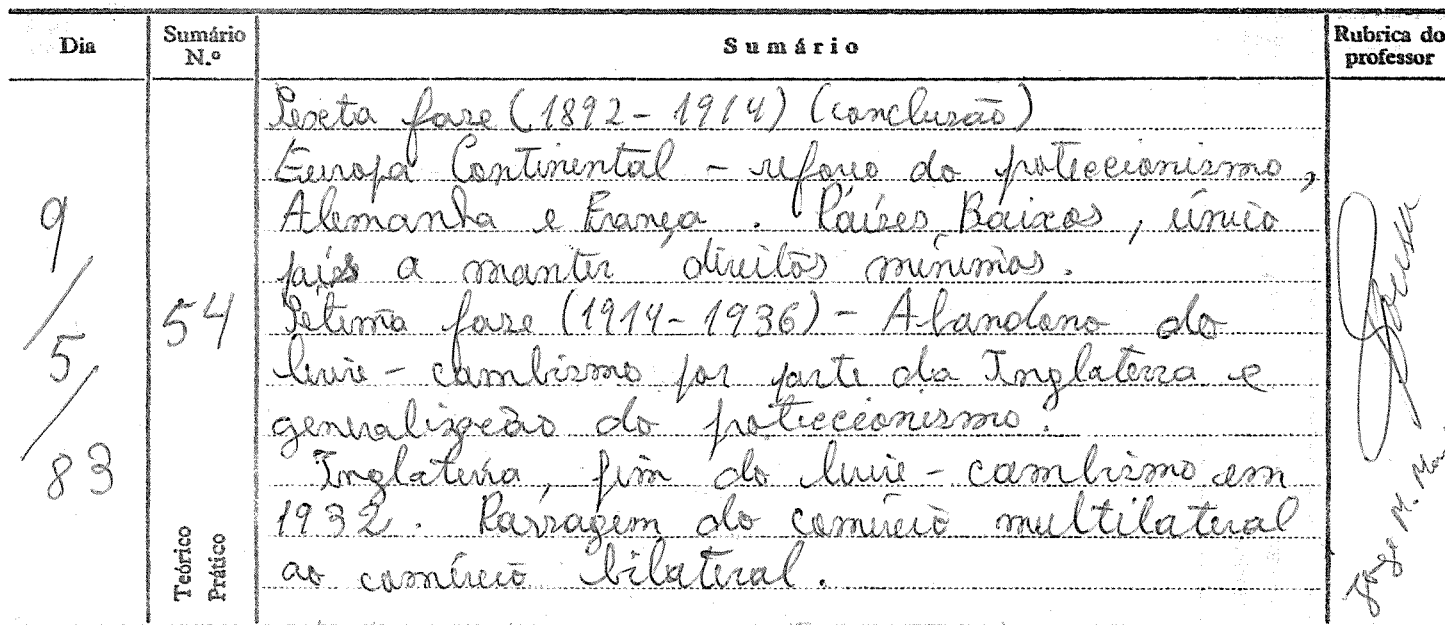 Dia
Sumário
N.º
Sumário
Rubrica do
professor
9/5/83
54
Teórico
Prático
Sexta fase (1892-1914) (conclusão)
Europa Continental - reforço do proteccionismo,
Alemanha e França. Países Baixos, único
país a manter direitos mínimos.
Sétima fase (1914-1936) - Abandono do
livre-cambismo por parte da Inglaterra e
generalização do proteccionismo.
Inglaterra, fim do livre-cambismo em
1932. Passagem do comércio multilateral
ao comércio bilateral.
Sousa
Jorge M.